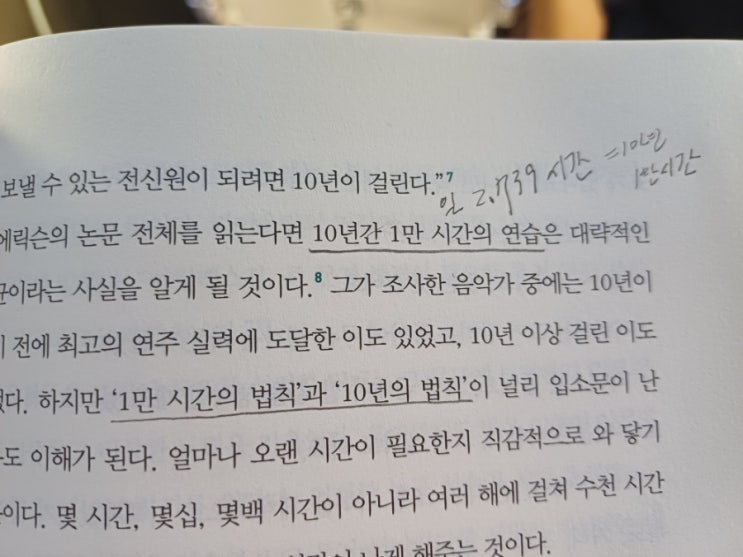 보낼 수 있는 전신원이 되려면 10년이 걸린다.”⁷
일 2.739 시간 =10년
1만시간
에릭슨의 논문 전체를 읽는다면 10년간 1만 시간의 연습은 대략적인
이라는 사실을 알게 될 것이다.⁸ 그가 조사한 음악가 중에는 10년이
전에 최고의 연주 실력에 도달한 이도 있었고, 10년 이상 걸린 이도
다. 하지만 ‘1만 시간의 법칙’과 ‘10년의 법칙’이 널리 입소문이 난
도 이해가 된다. 얼마나 오랜 시간이 필요한지 직감적으로 와 닿기
이다. 몇 시간, 몇십, 몇백 시간이 아니라 여러 해에 걸쳐 수천 시간
해주는 것이다.